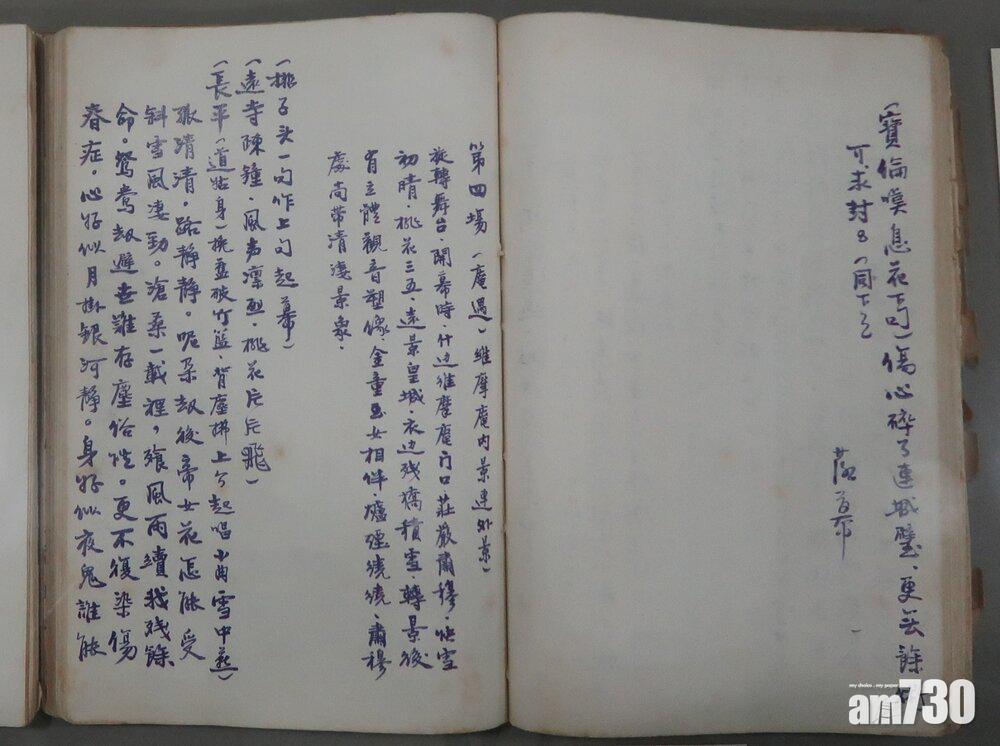 (寶倫嘆息花下句)傷心碎了連城璧,更無餘
可求封
落幕
第四場 (庵遇)維摩庵内景連外景)
旋轉舞台,開幕時,什边維摩庵门口莊嚴肅穆,快雪
初晴,桃花三五,遠景皇城,衣边残橋積雪,轉景後
有立體觀音塑像,金童玉女相伴,爐煙繞繞,肅穆
處尚带清淒景象,
(排子头一句作上句起幕)
(遠寺陳鐘,風声凜烈,桃花片片飛)
(長平(道姑身)挽盖破竹籃,背塵拂上介起唱小曲雪中燕)
孤清清。路靜靜。呢朵劫後帝女花怎能受
斜雪風淒勁。滄桑一載裡,飱風雨續我殘餘
命。鴛鴦劫避世難存塵俗性。更不復染傷
春症。心好似月掛銀河靜。身好似夜鬼誰能
my choice . my paper
am730